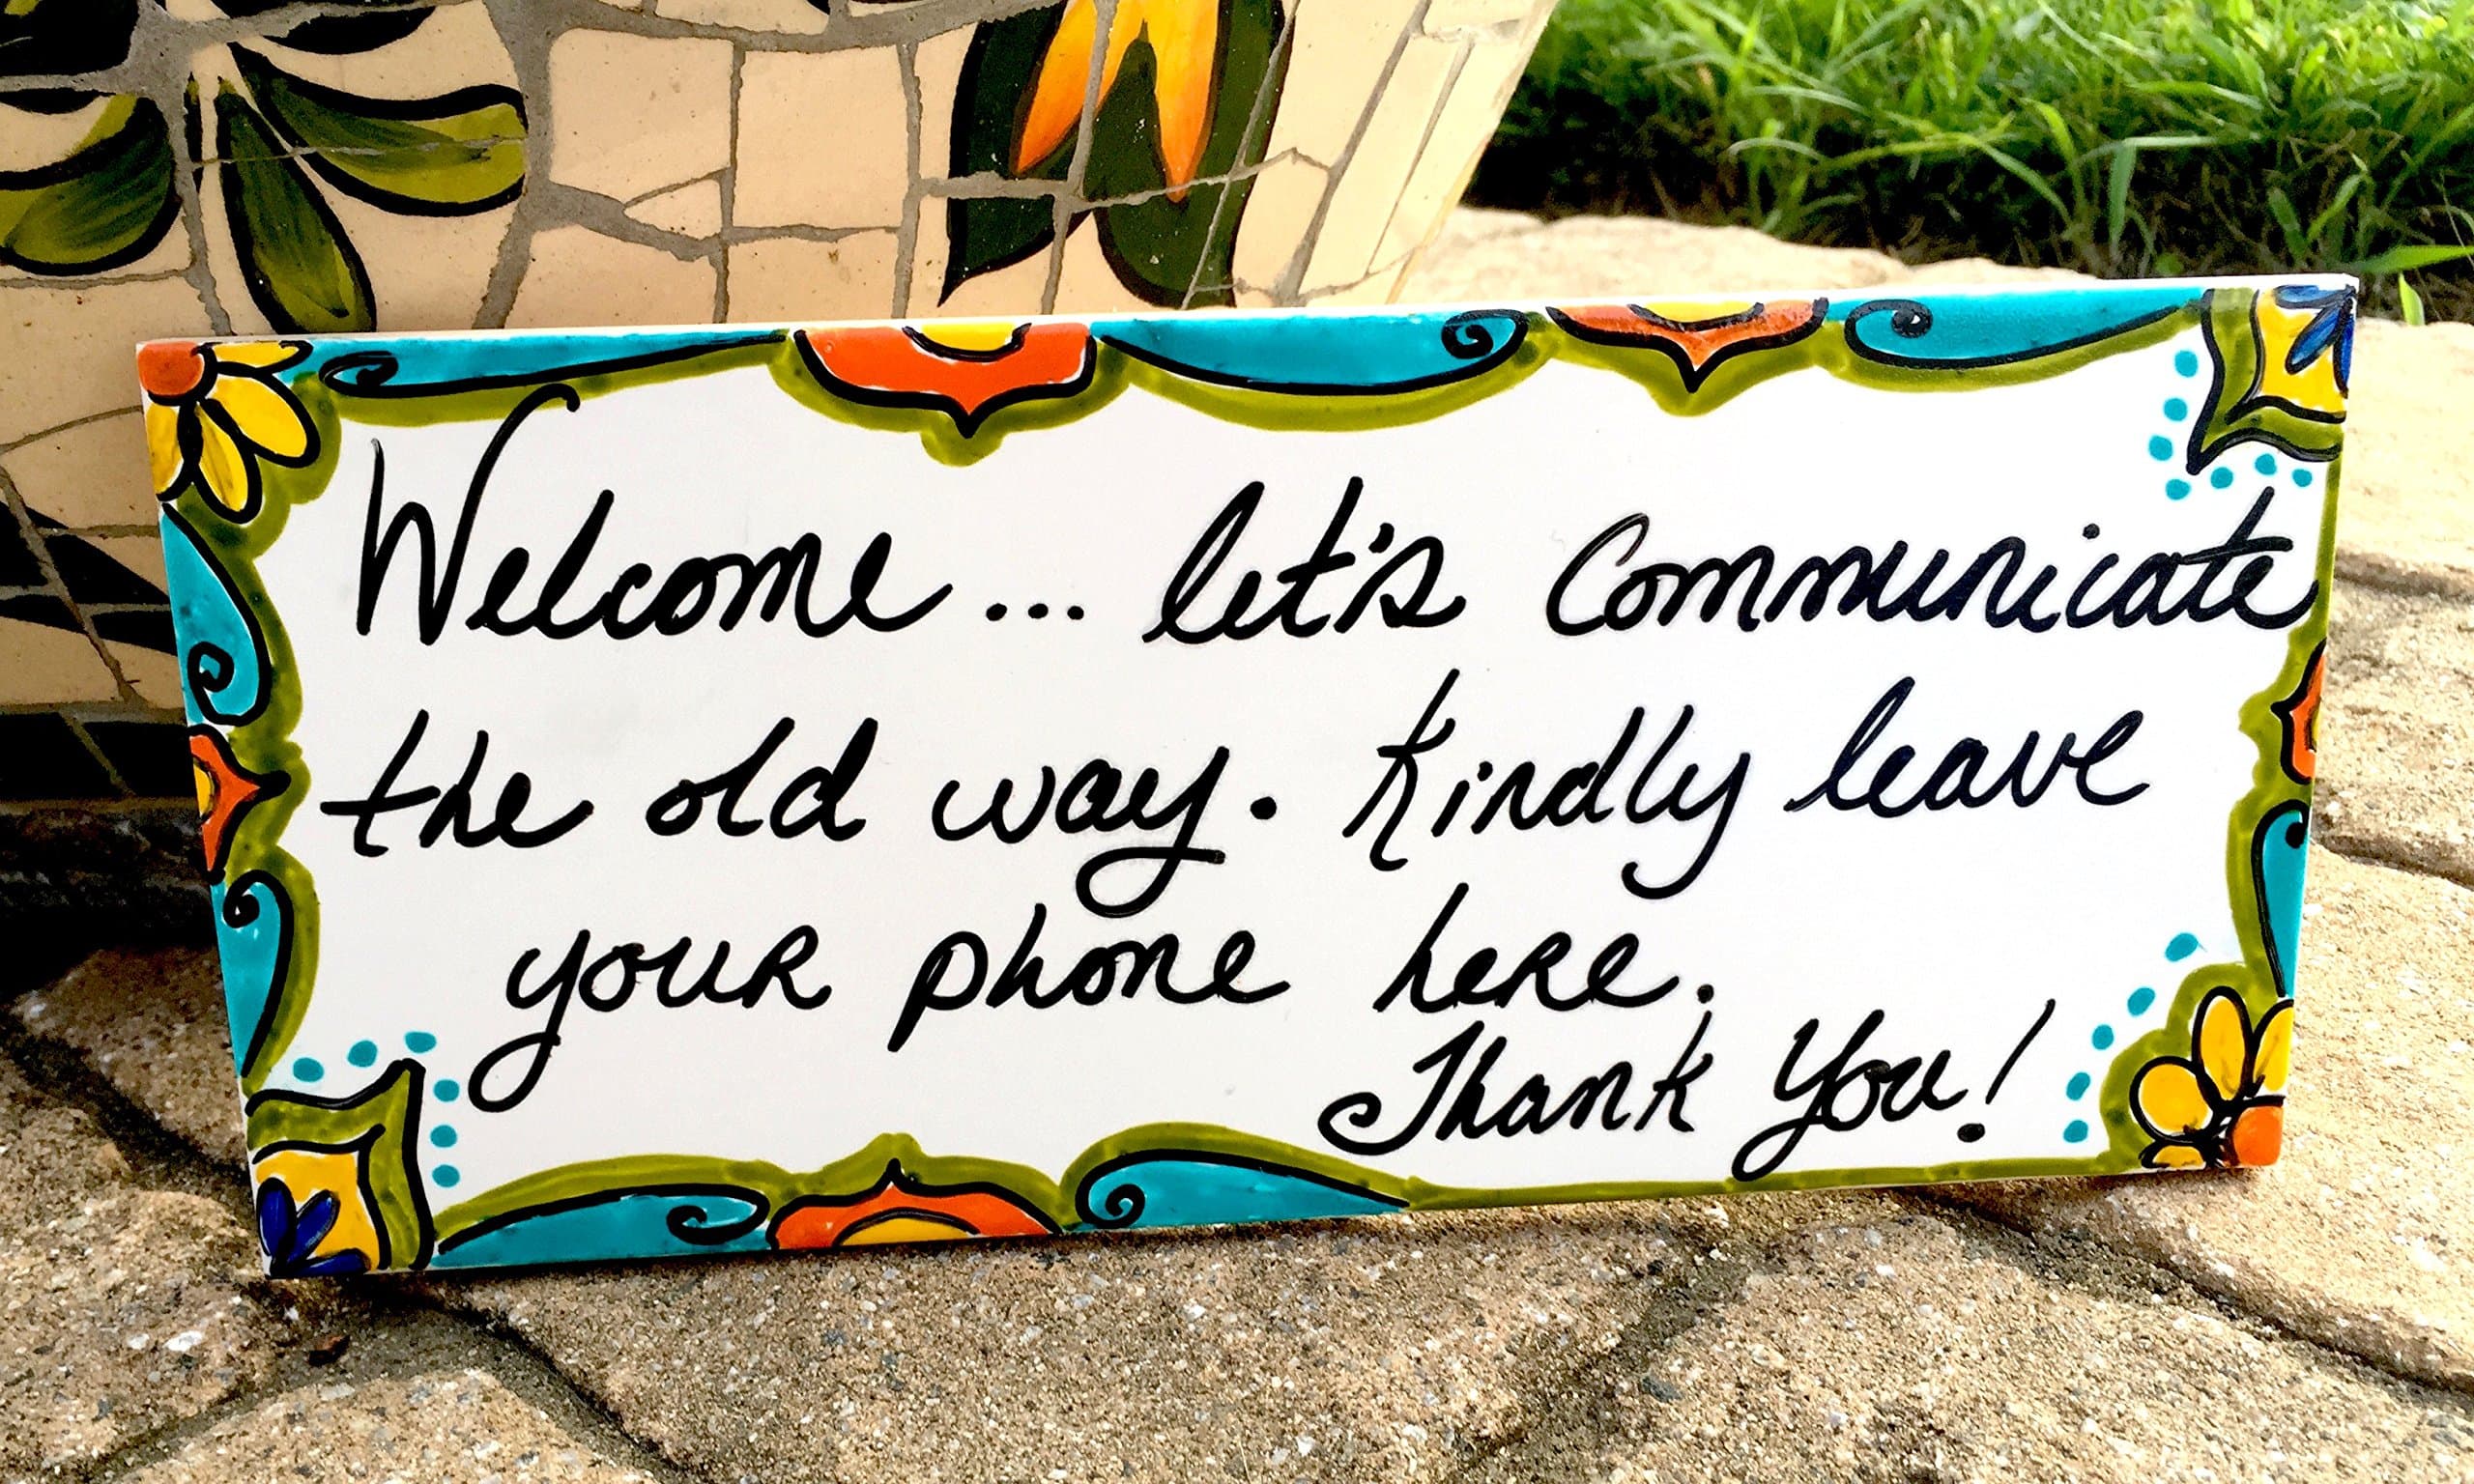 Welcome... let's Communicate
the old way. Kindly leave
your phone here.
Thank You!